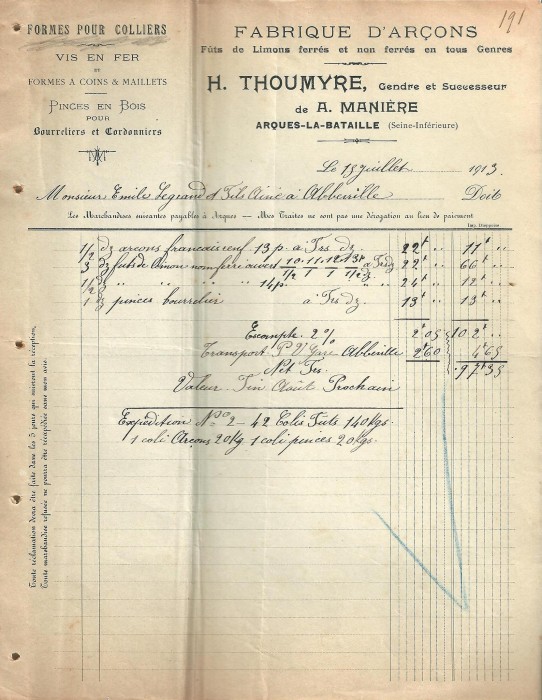 191
FORMES POUR COLLIERS
VIS EN FER
ET
FORMES A COINS & MAILLETS
PINCES EN BOIS
POUR
Bourreliers et Cordonniers
FABRIQUE D'ARÇONS
Fûts de Limons ferrés et non ferrés en tous Genres
H. THOUMYRE, Gendre et Successeur
de A. MANIÈRE
ARQUES-LA-BATAILLE (Seine-Inférieure)
Le 15 Juillet 1913.
Monsieur Emile Legrand & Fils Ainé à Abbeville Doit
Les Marchandises suivantes payables à Arques — Mes Traites ne sont pas une dérogation au lieu de paiement
1/2 dz arçons francais neuf 13 p. a Frs dz. 22f " 11f "
3 dz futs de limon non ferré ouvert 10. 11. 12. 13p a Frs dz 22f " 66f "
1/2 1 1 1/2 dz
1/2 dz " " " " 14p. " 24f " 12f "
1 dz pinces bourrelier a Frs dz. 13f " 13f "
Escompte 2% 2f05 102f "
Transport P.V. Gare Abbeville 2f60 4f65
Net Frs. 97f35
Valeur Fin Août Prochain
Expédition Nº 2 - 42 Colis Fûts 140 Kgs.
1 coli Arçons 20 Kg 1 coli pinces 20 Kgs.
Toute réclamation devra être faite dans les 3 jours qui suivront la réception.
Toute marchandise refusée ne pourra être réexpédiée sans mon avis.